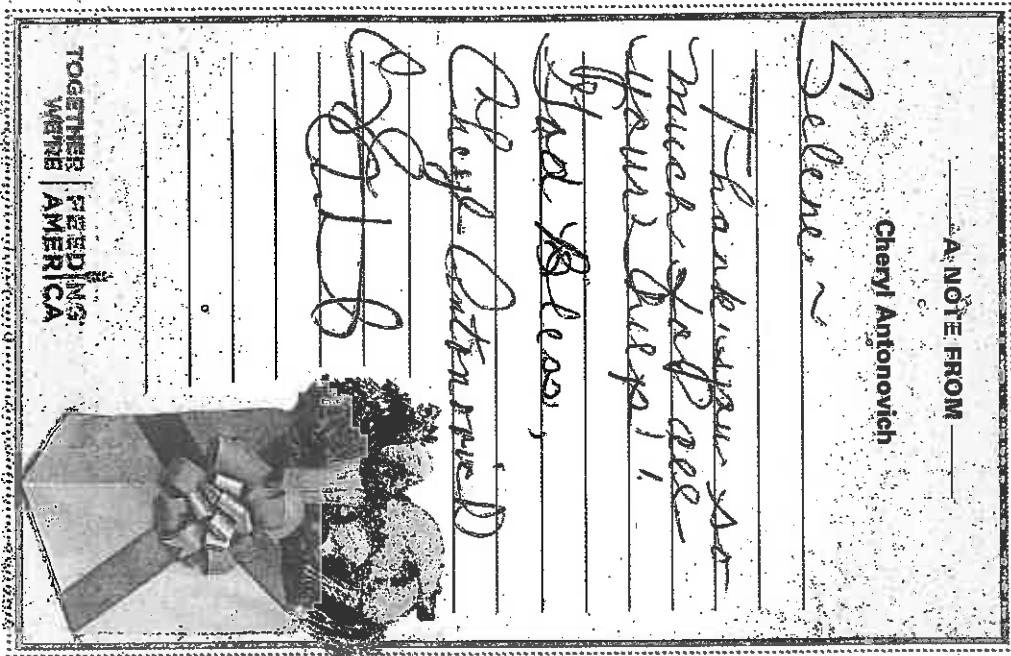 A NOTE FROM
Cheryl Antonovich
Selene ~
Thank you so
much for all
your help!!
God Bless,
Cheryl Antonovich
TOGETHER WE'RE | FEEDING AMERICA